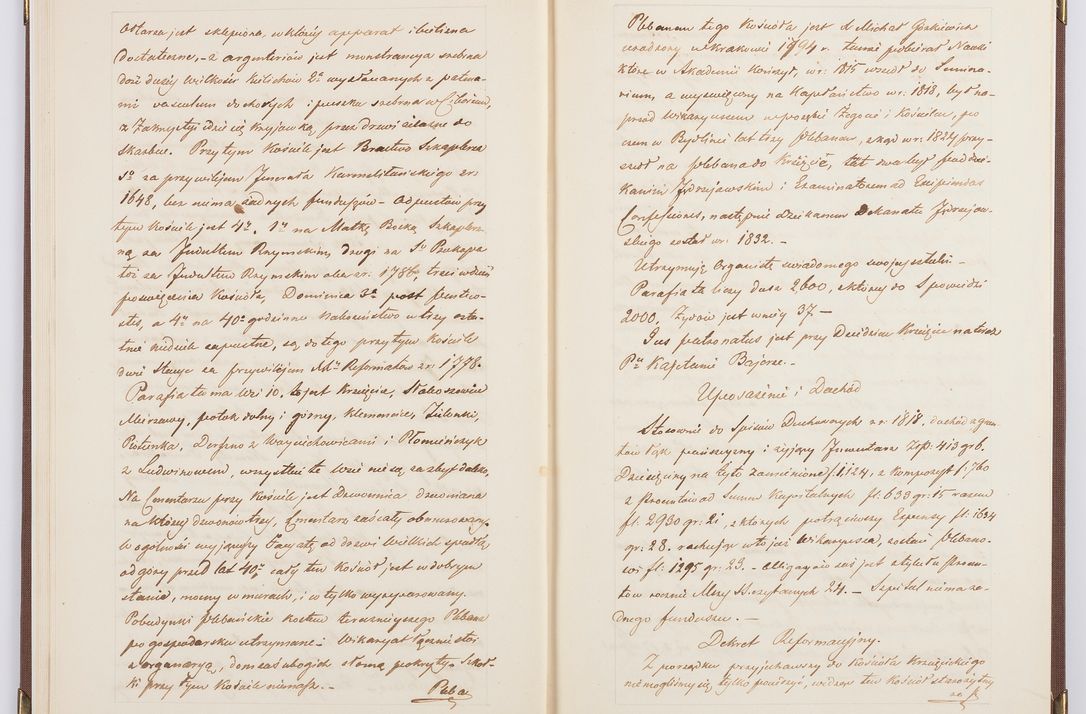 Ołtarza jest sklepiona, w której apparat i bielizna
dostateczne, – z argenteriów jest monstrancya srebrna
dość dużej wielkości kielichów 2ᵃ wyzłacanych z patena-
mi vasculum do chorych i puszka srebrna w Ciborium,
z Zakrystyi idzie się kryjówką przez drzwi żelazne do
skarbcu. Przy tym Kościele jest Bractwo Szkaplerza
Sᵒ za przywilejem Jenerała Karmelitańskiego z r.
1648, lecz niema żadnych funduszów – Odpustów przy
tym Kościele jest 4ʳ. 1ʸ na Matkę Boską Szkaplerz-
ną za Indultem Rzymskim, drugi na Sᵒ
za Indultem Rzymskim oba z r. 1786, trzeci w dzień
poświęcenia Kościoła, Dominica 3ᵃ post Pentec-
stes, a 4ʸ na 40ᵒ godzinne nabożeństwo w trzy osta-
tnie niedziele zapustne, są do tego przy tym Kościele
dwie Stacye za przywilejem Reformatów z r. 1778.
Parafia ta ma wsi 10, to jest Krzcięcice, Słaboszowice
Mierzawy, potok dolny i górny, Klemencice, Zielonki,
Piotunka, z Wojciechowicami i Płomieńczyk
z Ludwinowem, wszystkie te wsie nie są za zbyt daleko,
Na Cmentarzu przy Kościele jest Dzwonnica drewniana
na której dzwonów trzy, Cmentarz zaś cały obmurowany.
W ogólności wyjąwszy Facyatę od drzwi wielkich spadłą
od góry przed lat 40, cały ten Kościół jest w dobrym
stanie, mocny w murach, i w tylko wyreparowany.
Pobudynki plebańskie kosztem teraźniejszego Plebana
po gospodarsku utrzymane – Wikaryat łącznie stoi
z organaryą, dom zaś ubogich słomą pokryty – Szkoł-
ki przy tym Kościele niemasz. –
Pleba
Plebanem tego Kościoła jest X Michał Gorkiewicz
urodzony w Krakowie 1794 r. tamże pobierał Nauki
które w Akademii kończył, w r. 1815 wszedł do Semina-
rium, a wyświęcony na Kapłaństwo w r. 1818, był na-
przód Wikaryuszem w początki Żegocie i Kościelcu, po
czem w Bydlinie lat trzy plebanem, zkąd w r. 1824 przy-
szedł na plebana do Krzcięcic, lat dwa był poddzie-
kanim Jędrzejowskim i Examinatorem ad Excipiendas
Confessiones, następnie dziekanem Dekanatu Jędrzejow-
skiego został w r. 1832. –
Utrzymuje Organistę świadomego swojej sztuki –
Parafia ta liczy dusz 2600, z których do Spowiedzi
2000, Żydów jest w niej 37 –
Jus patronatus jest przy Dziedzicu Krzcięcic na teraz
Pᵘ Kapitanie Bajerze. –
Uposażenie i Dochód
Stosownie do Spisów Duchownych z r. 1818, dochód z grun-
tów łąk pańszczyzny i żyjący Inwentarz Złp. 413 gr 6.
Dziesięciny na żyto zamienione fl 1124, z Kompozyt f. 760
z Procentów od Summ Kapitalnych fl. 633 gr. 15 razem
fl. 2930 gr. 21, z których potrąciwszy Expensy fl. 1634
gr. 28. rachując w to już Wikaryusza, zostaje Plebano-
wi fl. 1295 gr. 23. – Obligacyów zaś jest z tytułu Procen-
tów rocznie Mszy SS. czytanych 24. – Szpital nie ma ża-
dnego funduszu. –
Dekret Reformacyjny.
Z porządku przyjechawszy do Kościoła Krzcięckiego
nie mogliśmy się tylko pocieszyć, widząc ten Kościół starożytny